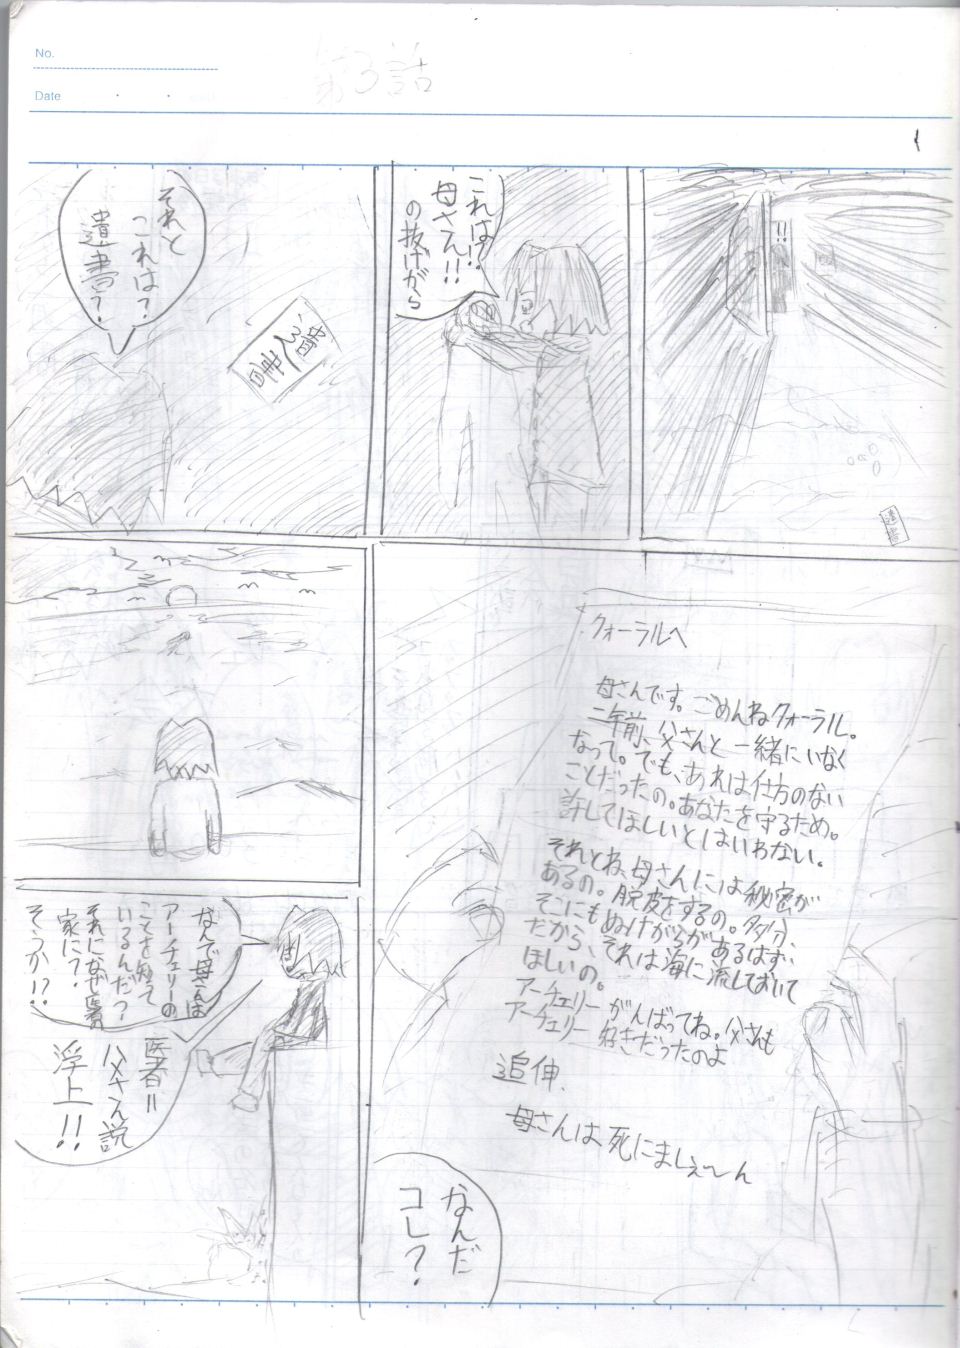 No.
Date
第3話
1
!!
遺書
これは!?
母さん!!
の抜けがら
それと
これは?
遺書?
遺書
クォーラルへ
母さんです。ごめんねクォーラル。
二年前、父さんと一緒にいなく
なって。でも、あれは仕方のない
ことだったの。あなたを守るため。
許してほしいとはいわない。
それとね、母さんには秘密が
あるの。脱皮をするの。多分、
そこにもぬけがらがあるはず。
だから、それは海に流しておいて
ほしいの。
アーチェリーがんばってね。父さんも
アーチェリー好きだったのよ
追伸、
母さんは、死にましぇ〜ん
なんだ
コレ?
なんで母さんは
アーチェリーの
ことを知って
いるんだ?
それになぜ医者の
家に?
そうか!?
医者=
父さん説
浮上!!